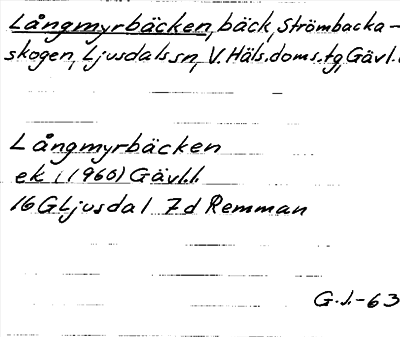 Långmyrbäcken, bäck, Strömbacka-
skogen, Ljusdals sn, V. Häls. doms. tg, Gävl.
Långmyrbäcken
ek i (1960) Gävl.l.
16G Ljusdal 7d Remman
G.J.-63